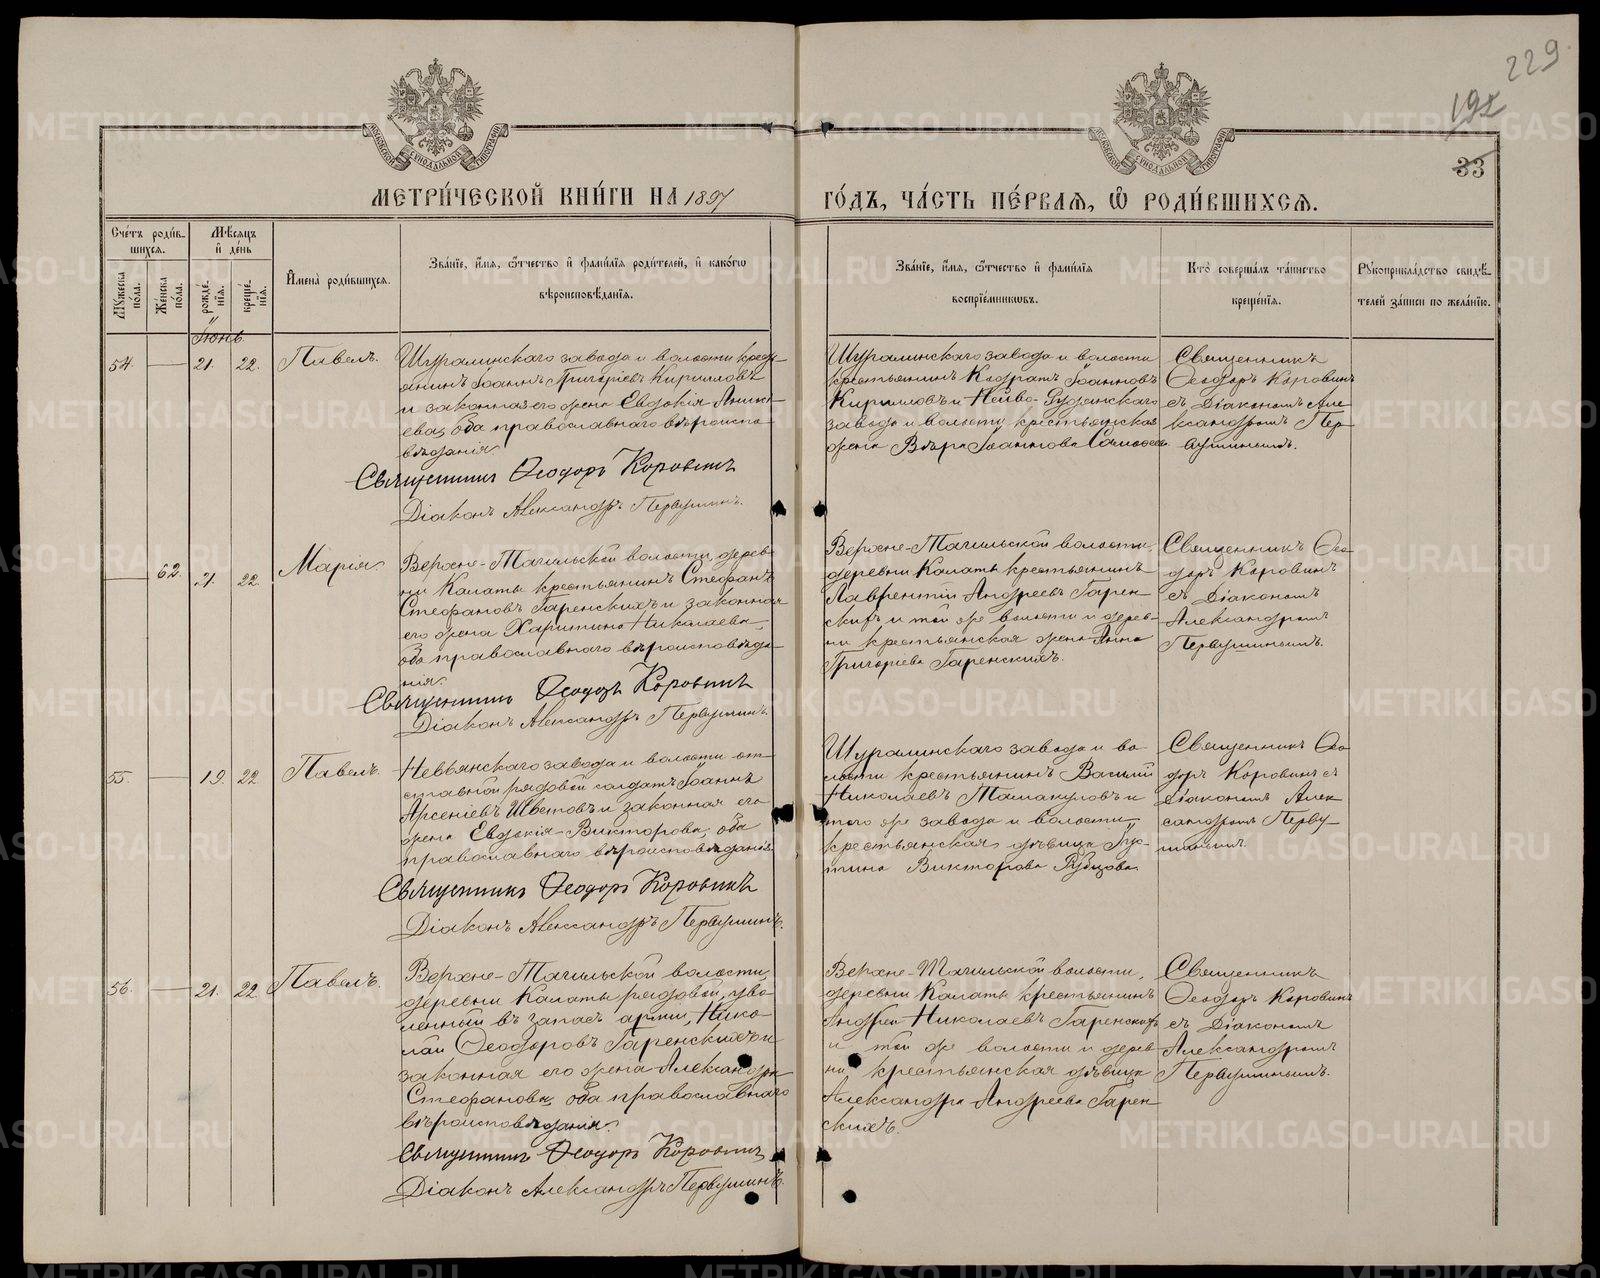 229
192
33
МОСКОВСКОЙ СѴНОДАЛЬНОЙ ТИПОГРАФІИ
МОСКОВСКОЙ СѴНОДАЛЬНОЙ ТИПОГРАФІИ
МЕТРИ́ЧЕСКОЙ КНИ́ГИ НА 1897
ГО́ДЪ, ЧА́СТЬ ПЕ́РВАѦ, Ѽ РОДИ́ВШИХСѦ.
Сче́тъ роди́в-
шихсѧ.
Мѣсѧцъ
и҆ де́нь
Мꙋ́жеска
по́ла.
Же́нска
по́ла.
рожде́-
нїѧ.
креще́-
нїѧ.
И҆мена̀ роди́вшихсѧ.
Зва́нїе, и҆́мѧ, ѻ҆́тчество и҆ фами́лїѧ роди́телей, и҆ како́гѡ
вѣроисповѣ́данїѧ.
Зва́нїе, и҆́мѧ, ѻ҆́тчество и҆ фами́лїѧ
воспрїе́мникѡвъ.
Кто̀ соверша́лъ та́инство
креще́нїѧ.
Рꙋкоприкла́дство свидѣ́-
телей за́писи по жела́нїю.
Іюнь
54. — 21. 22. Павелъ.
Шуралинскаго завода и волости кресть-
янинъ Іоаннъ Григоріевъ Кирилловъ
и законная его жена Евдокія Аники-
ева, оба православнаго вѣроиспо-
вѣданія.
Священникъ Ѳеодоръ Коровинъ
Діаконъ Александръ Первушинъ.
Шуралинскаго завода и волости
крестьянинъ Кодратъ Іоанновъ
Кирилловъ и Нейво-Рудянскаго
завода и волости крестьянская
жена Вѣра Іоаннова
Священникъ
Ѳеодоръ Коровинъ
съ Діакономъ Але-
ксандромъ Пер-
вушинымъ.
— 62. 21. 22. Марія
Верхне-Тагильской волости, дерев-
ни Калаты крестьянинъ Стефанъ
Стефановъ Гаренскихъ и законная
его жена Харитина Николаева,
оба православнаго вѣроисповѣда-
нія.
Священникъ Ѳеодоръ Коровинъ
Діаконъ Александръ Первушинъ.
Верхне-Тагильской волости,
деревни Калаты крестьянинъ
Лаврентій Андреевъ Гарен-
скихъ и той же волости и дерев-
ни крестьянская жена Анна
Григорьева Гаренскихъ.
Священникъ Ѳео-
доръ Коровинъ
съ Діакономъ
Александромъ
Первушинымъ.
55. — 19. 22 Павелъ.
Невьянскаго завода и волости от-
ставной рядовой солдатъ Іоаннъ
Арсеніевъ Цвѣтовъ и законная его
жена Евдокія Викторова, оба
православнаго вѣроисповѣданія
Священникъ Ѳеодоръ Коровинъ
Діаконъ Александръ Первушинъ.
Шуралинскаго завода и во-
лости крестьянинъ Василій
Николаевъ Тамакуловъ и
того же завода и волости
крестьянская дѣвица Іус-
тина Викторова Рубцова.
Священникъ Ѳео-
доръ Коровинъ съ
Діакономъ Алек-
сандромъ Перву-
шинымъ
56. — 21. 22 Павелъ.
Верхне-Тагильской волости,
деревни Калаты рядовой, уво-
ленный въ запасъ арміи, Нико-
лай Ѳеодоровъ Гаренскихъ и
законная его жена Александра
Стефанова, оба православнаго
вѣроисповѣданія.
Священникъ Ѳеодоръ Коровинъ
Діаконъ Александръ Первушинъ.
Верхне-Тагильской волости,
деревни Калаты крестьянинъ
Андрей Николаевъ Гаренскихъ
и той же волости и дерев-
ни крестьянская дѣвица
Александра Андреева Гарен-
скихъ.
Священникъ
Ѳеодоръ Коровинъ
съ Діакономъ
Александромъ
Первушинымъ.
METRIKI.GASO-URAL.RU